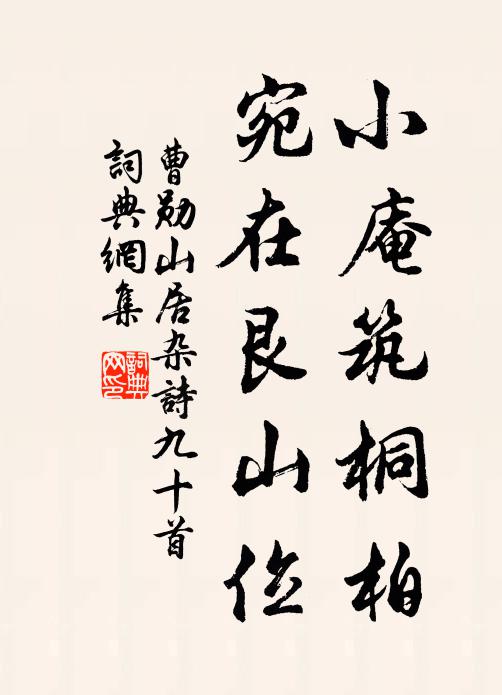 小庵筑桐柏
宛在艮山位
曹勋山居杂詩九十首
詞典網集
詞典網印